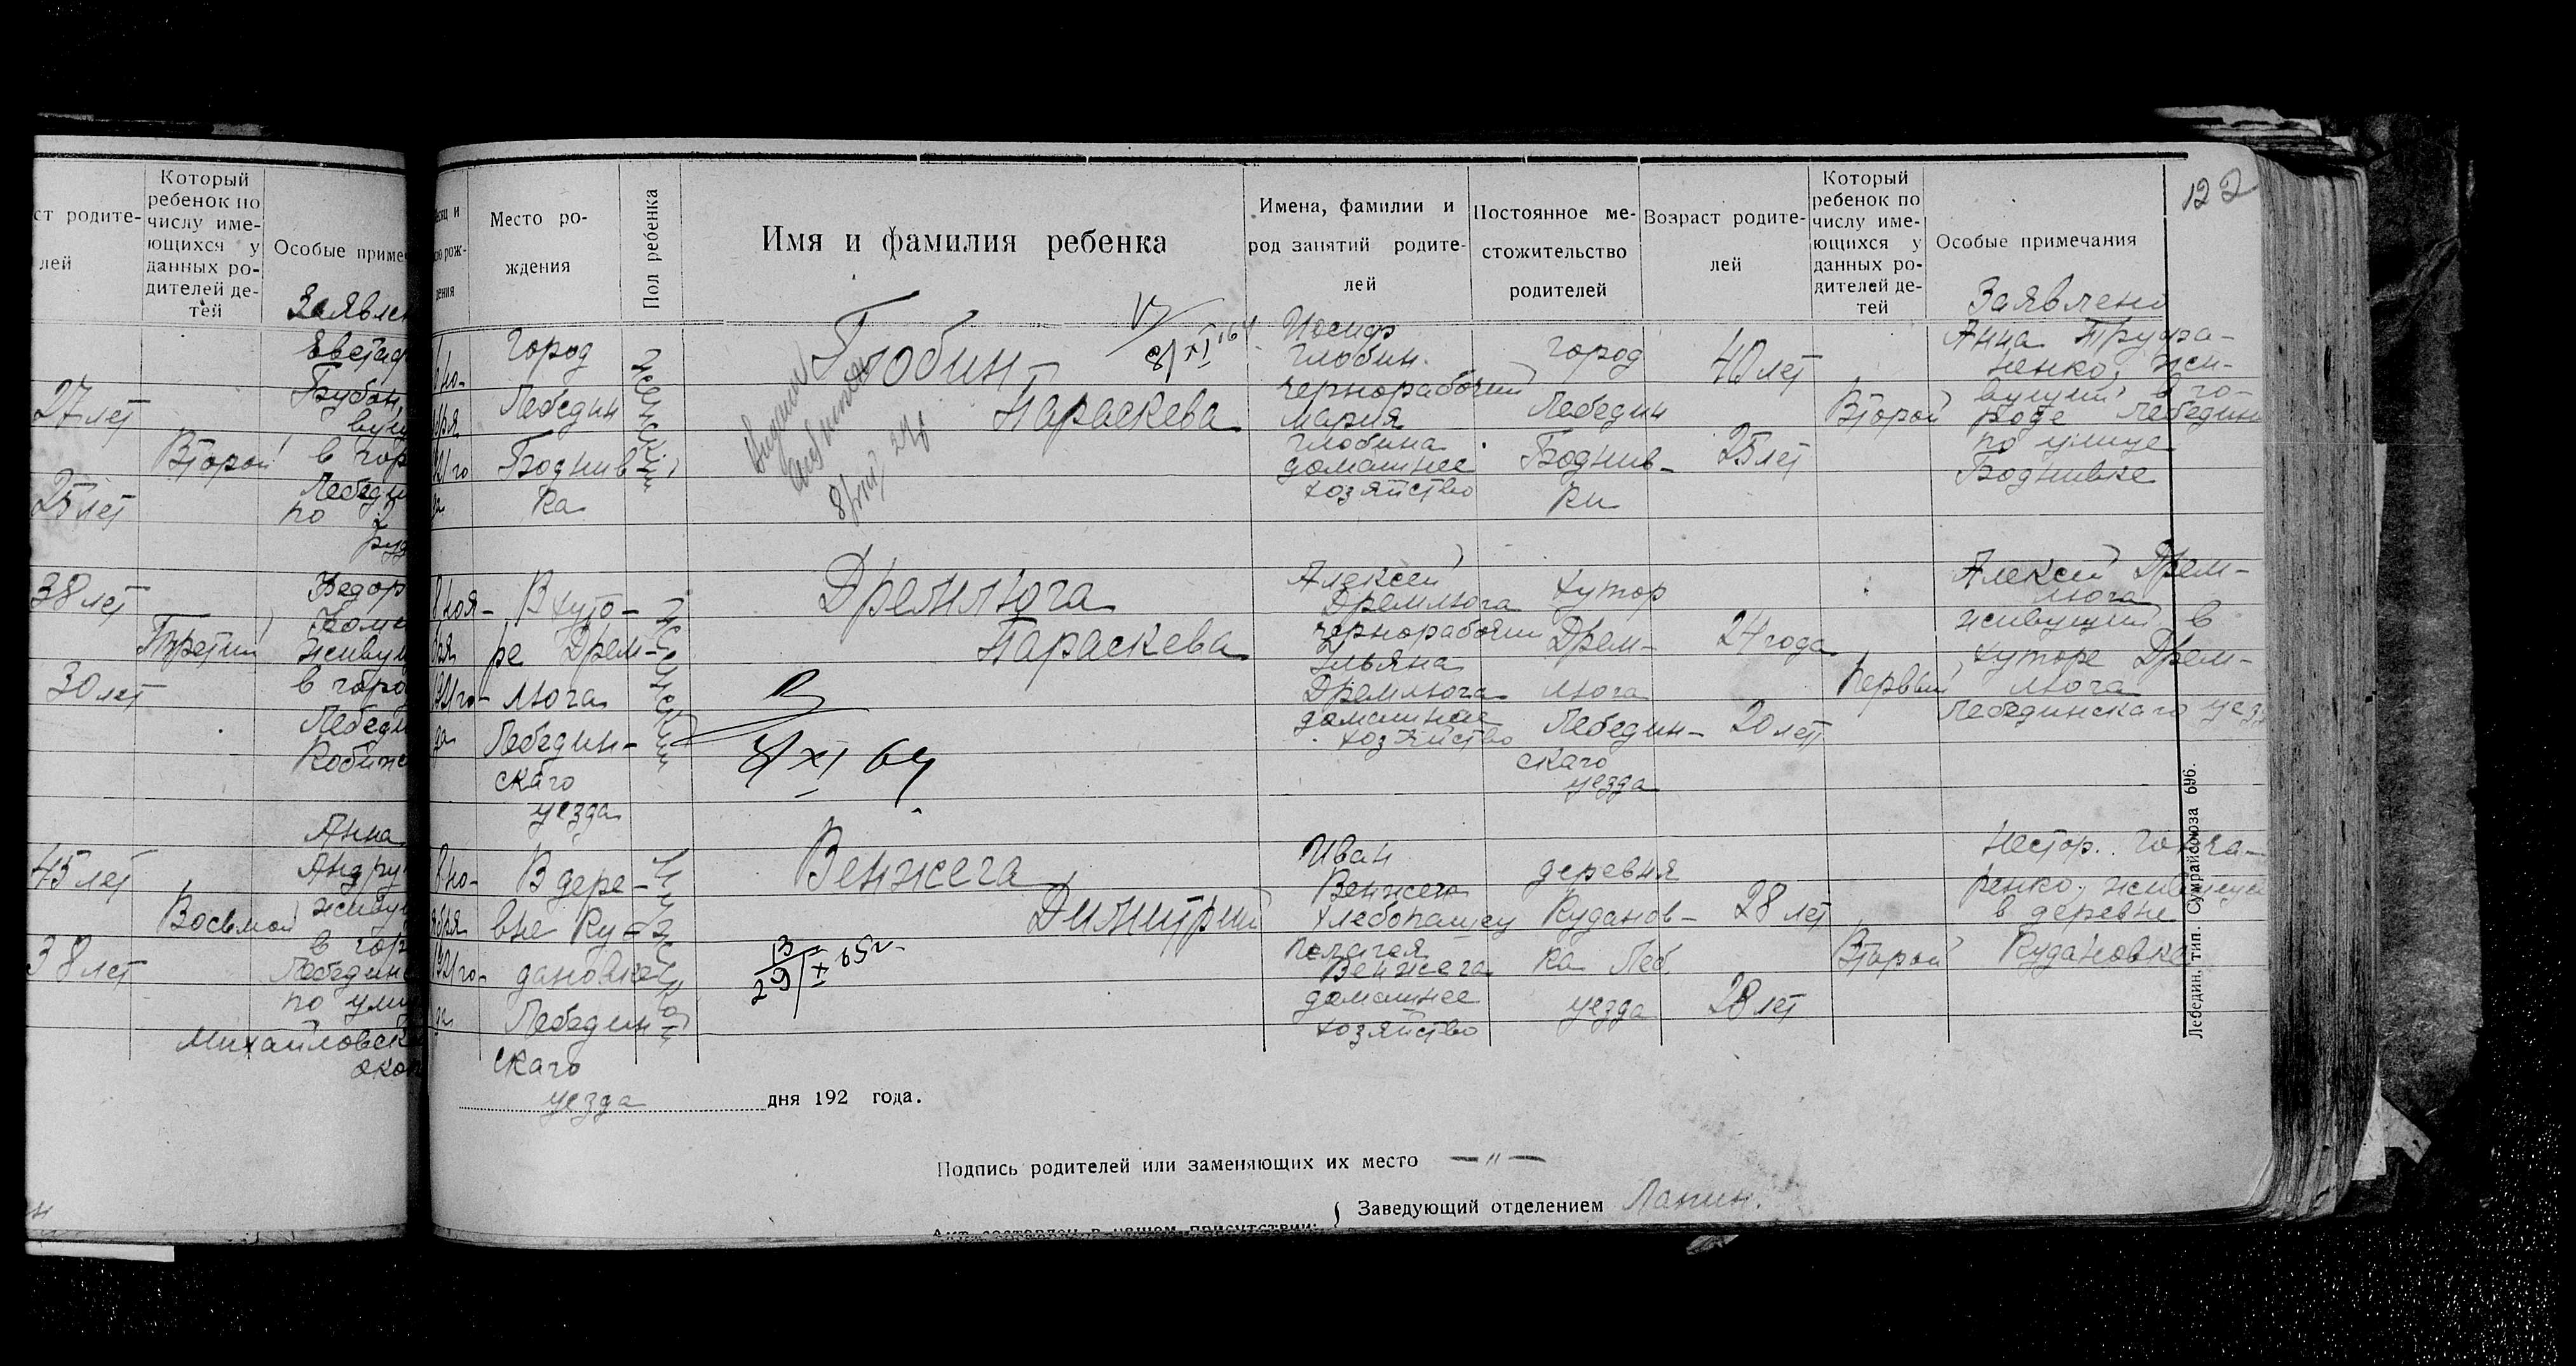 ст родите-
лей
Который
ребенок по
числу име-
ющихся у
данных ро-
дителей де-
тей
Особые приме
Заявлен
27 лет
25 лет
Второй
в гор
Лебеди
по
38 лет
30 лет
Третий
Федор
живущ
в горо
Лебеди
45 лет
38 лет
Восьмой
Анна
Андру
живущ
в гор
Лебедин
по ули
Михайловск
122
Место ро-
ждения
Пол ребенка
Имя и фамилия ребенка
Имена, фамилии и
род занятий родите-
лей
Постоянное ме-
стожительство
родителей
Возраст родите-
лей
Который
ребенок по
числу име-
ющихся у
данных ро-
дителей де-
тей
Особые примечания
Заявлено
Город
Лебедин
Боднив
ка
женский
Глобин
Параскева
8/XI 64
Иосиф
Глобин
чернорабочий
Мария
Глобина
домашнее
хозяйство
город
Лебедин
Боднив-
ки
40 лет
25 лет
Второй
Анна Труфа-
ненко, жи-
вущий в го-
роде Лебедин
по улице
Боднивке
8 ноя-
бря
1921 го-
да
В хуто-
ре Дрем-
люга
Лебедин-
скаго
уезда
женский
Дремлюга
Параскева
8/XI 64
Алексей
Дремлюга
чернорабочий
Ульяна
Дремлюга
домашнее
хозяйство
хутор
Дрем-
люга
Лебедин-
скаго
уезда
24 года
20 лет
Первый
Алексей Дрем-
люга
живущий в
хуторе Дрем-
люга
Лебединскаго уез
8 но-
ября
1921 го-
да
В дере-
вне Ку-
дановке
Лебедин
скаго
уезда
мужской
Венжега
Димитрий
29/X 65г.
Иван
Венжега
хлебопашец
Пелагея
Венжега
домашнее
хозяйство
деревня
Куданов-
ка Леб.
уезда
28 лет
28 лет
Второй
Нестор Гонча-
ренко, живущий
в деревне
Кудановка
дня 192 года.
Подпись родителей или заменяющих их место — " —
Заведующий отделением Лапин.
Акт составлен в нашем присутствии:
Лебедин. тип. Сумрайсоюза 696.